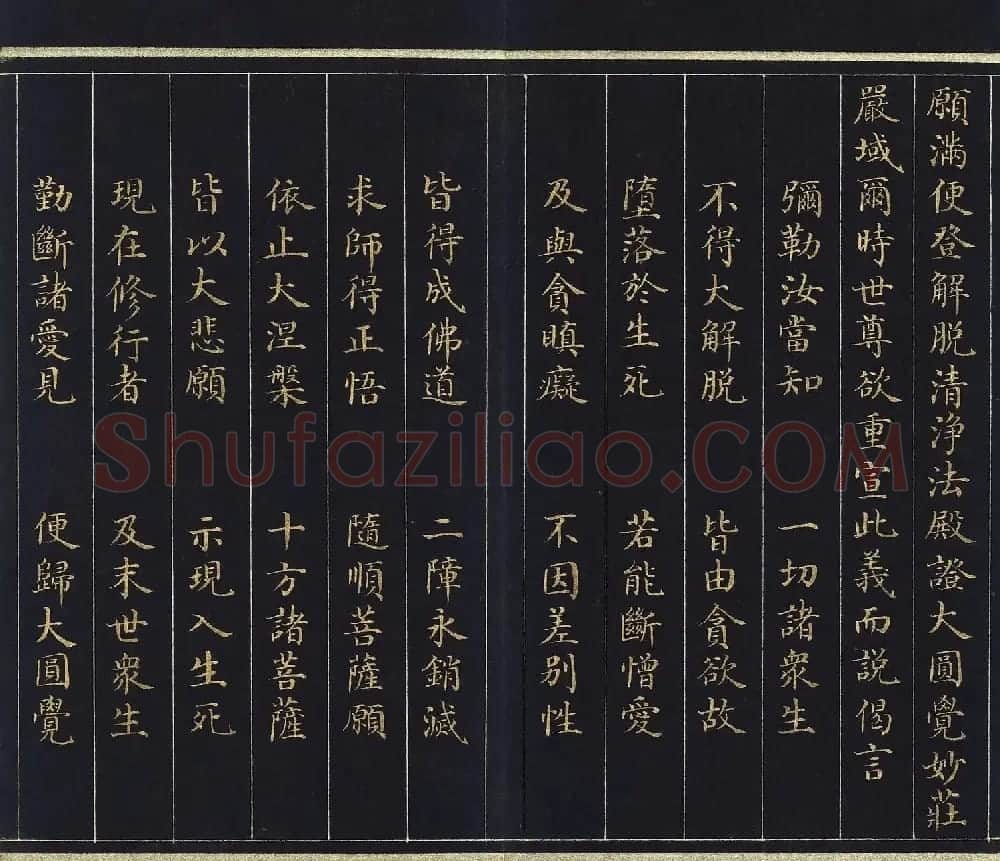 願滿便登解脱清淨法殿證大圓覺妙莊
嚴域爾時世尊欲重宣此義而説偈言
彌勒汝當知 一切諸衆生
不得大解脱 皆由貪欲故
墮落於生死 若能斷憎愛
及與貪瞋癡 不因差别性
皆得成佛道 二障永銷滅
求師得正悟 隨順菩薩願
依止大涅槃 十方諸菩薩
皆以大悲願 示現入生死
現在修行者 及末世衆生
勤斷諸愛見 便歸大圓覺
Shufaziliao.COM